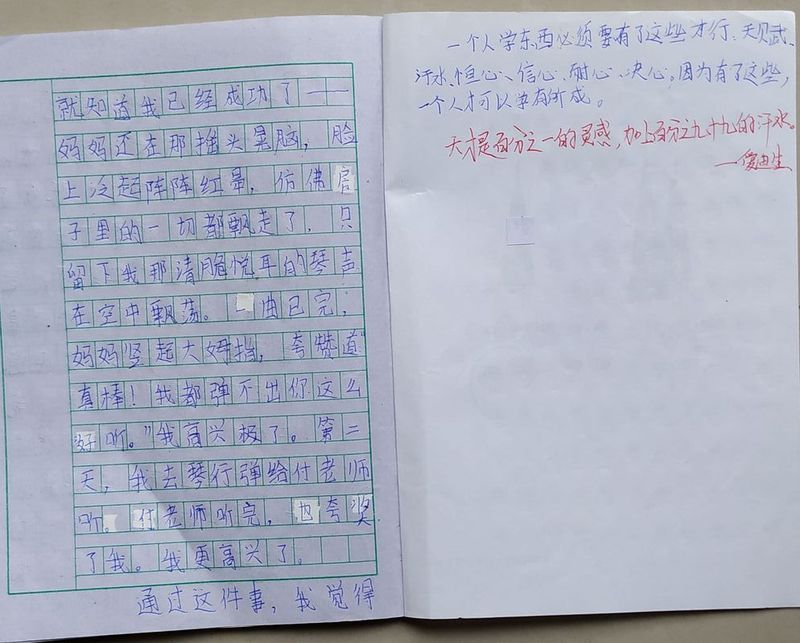 就知道我已经成功了——
妈妈还在那摇头晃脑，脸
上泛起阵阵红晕，仿佛屋
子里的一切都飘走了，只
留下我那清脆悦耳的琴声
在空中飘荡。一曲已完，
妈妈竖起大姆指，夸赞道“
真棒！我都弹不出你这么
好听。”我高兴极了。第二
天，我去琴行弹给付老师
听。付老师听完，也夸奖
了我。我更高兴了。
通过这件事，我觉得
一个人学东西必须要有了这些才行，天赋、
汗水、恒心、信心、耐心、决心。因为有了这些，
一个人才可以学有所成。
天才是百分之一的灵感，加上百分之九十九的汗水。
—爱迪生